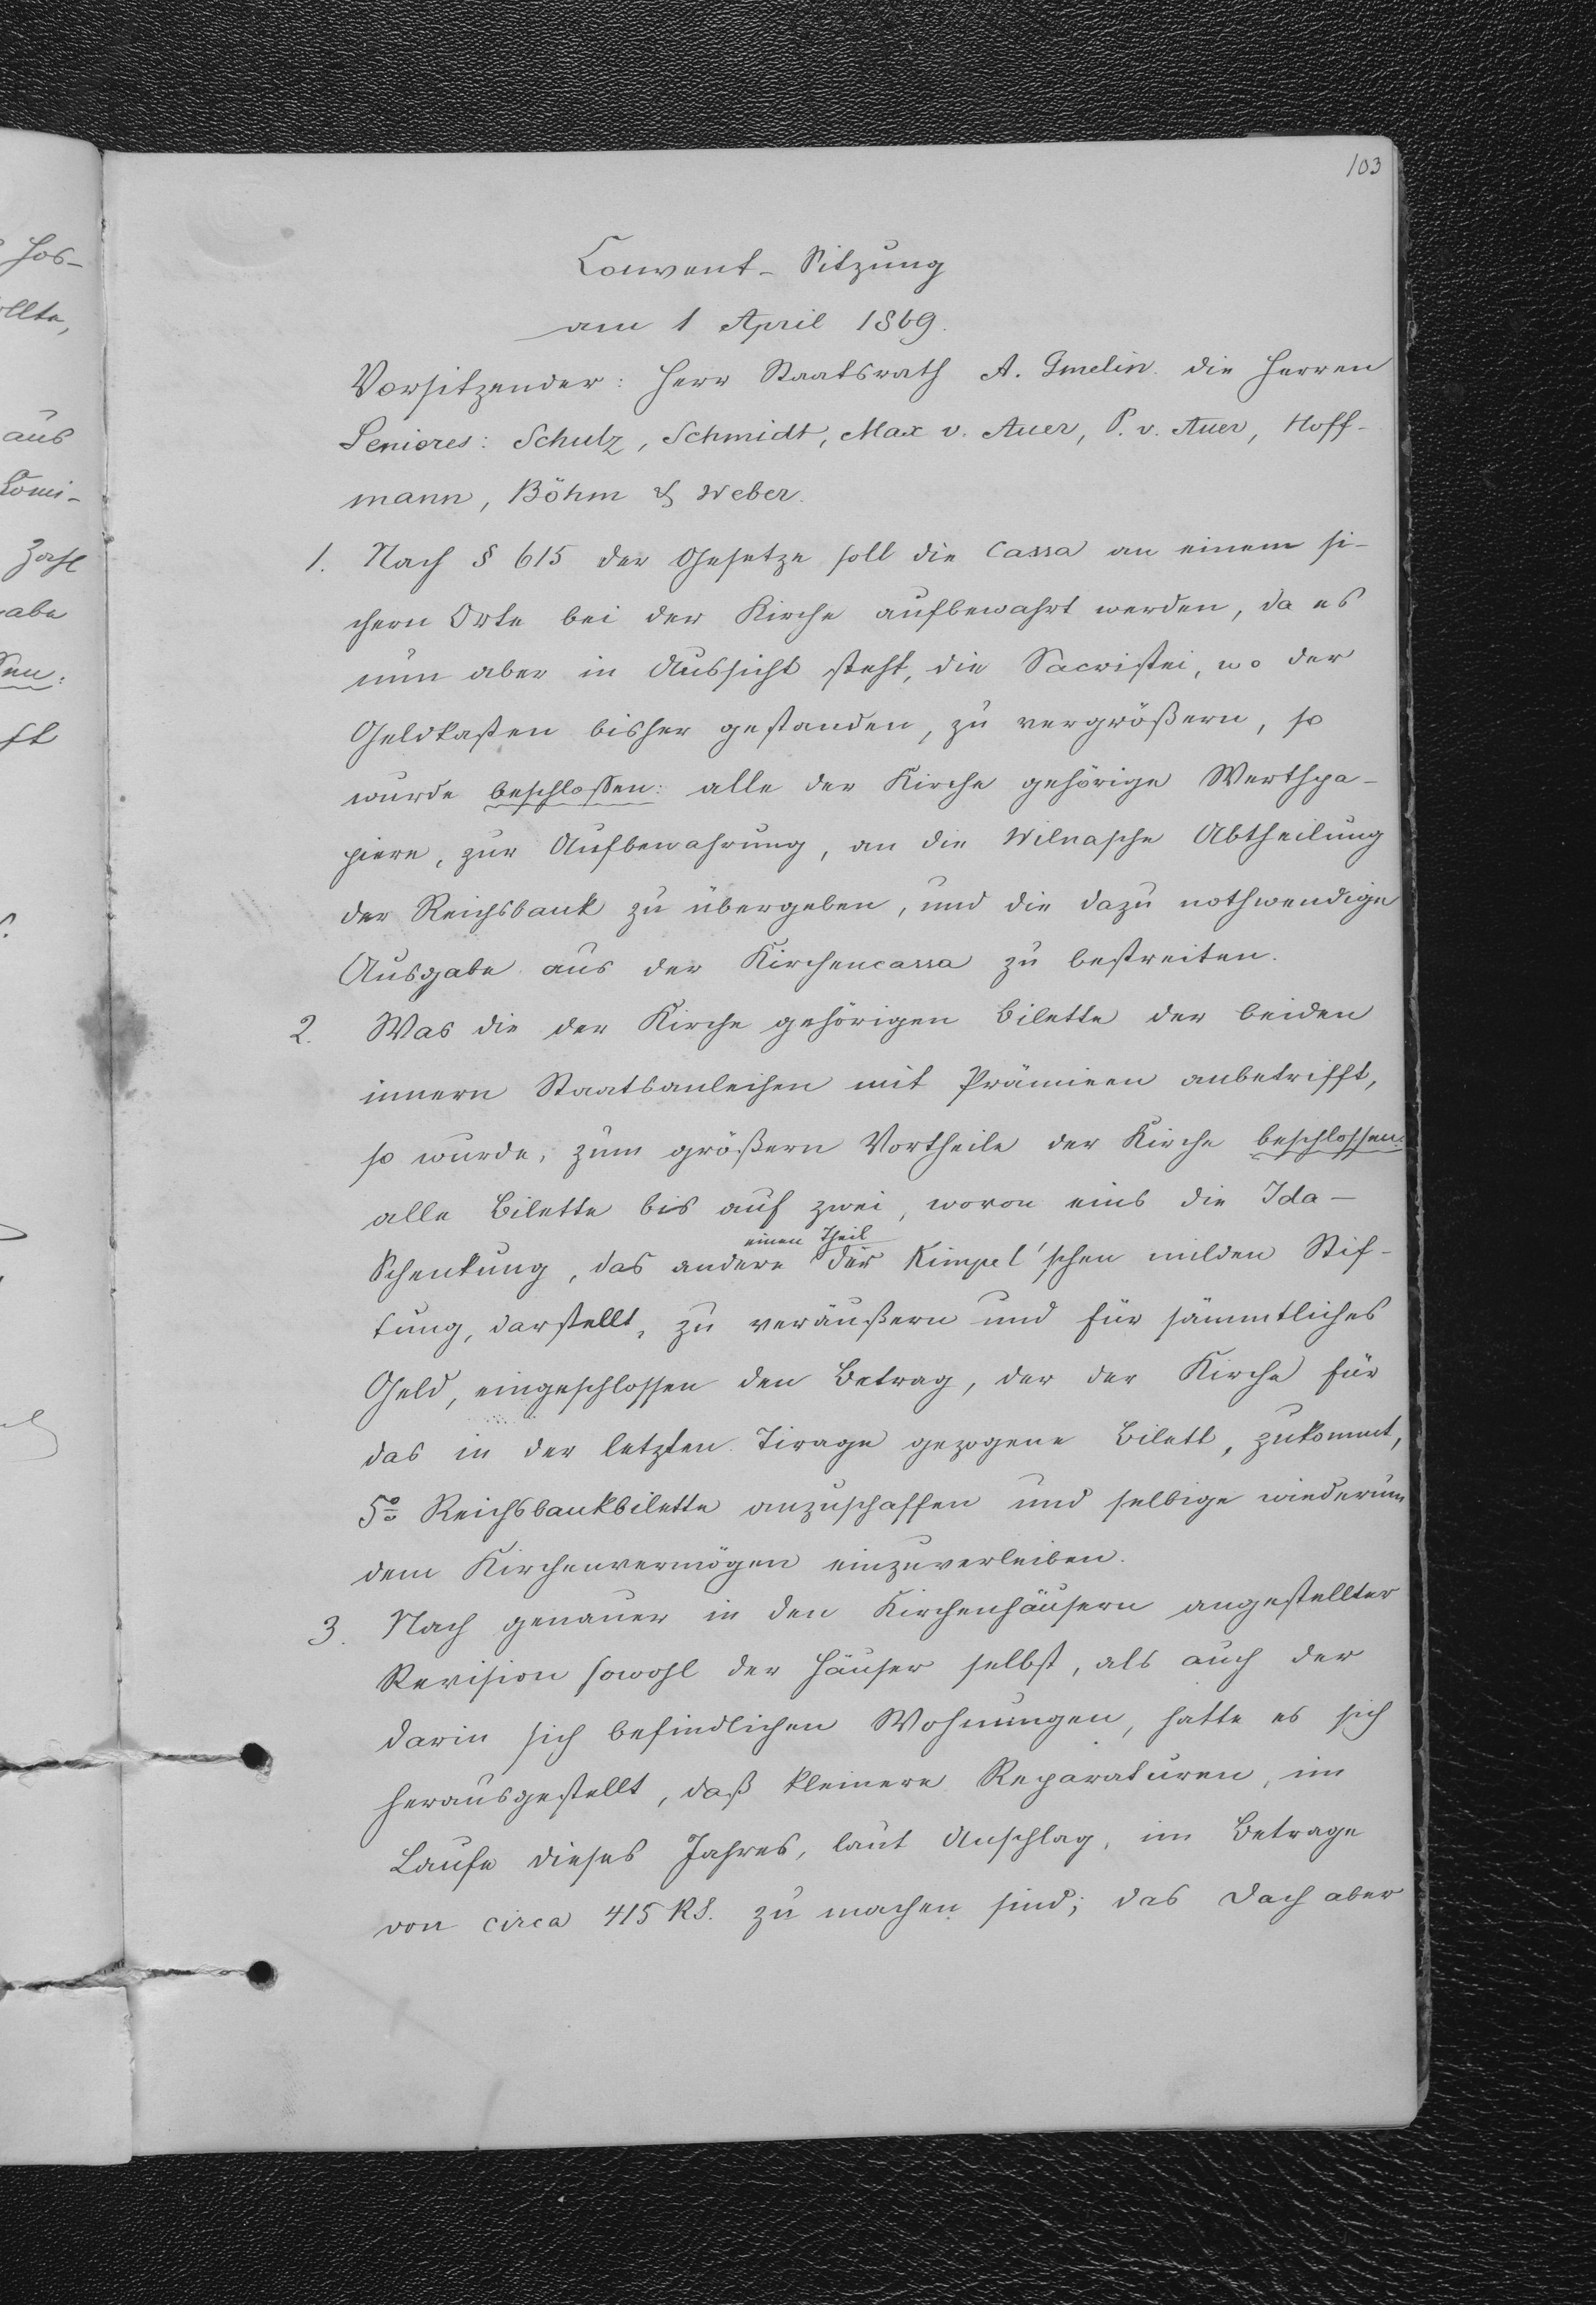 103
Convent-Sitzung
am 1 April 1869.
Vorsitzender: Herr Staatsrath A. Gmelin. die Herren
Seniores: Schulz, Schmidt, Max v. Auer, P. v. Auer, Hoff-
mann, Böhm & Weber.
1. Nach § 615 der Gesetze soll die Cassa an einem si-
chern Orte bei der Kirche aufbewahrt werden, da es
nun aber in Aussicht steht, die Sacristei, wo der
Geldkasten bisher gestanden, zu vergrößern, so
wurde beschlossen: alle der Kirche gehörige Werthpa-
piere, zur Aufbewahrung, an die Wilnasche Abtheilung
der Reichsbank zu übergeben, und die dazu nothwendige
Ausgabe aus der Kirchencassa zu bestreiten.
2. Was die der Kirche gehörigen Bilette der beiden
innern Staatsanleihen mit Prämieen anbetrifft,
so wurde, zum größern Vortheile der Kirche beschlossen:
alle Bilette bis auf zwei, wovon eins die Ida-
einen Theil
Schenkung, das andere der Kimpel'schen milden Stif-
tung, darstellt, zu veräußern und für sämmtliches
Geld, eingeschlossen den Betrag, der der Kirche für
das in der letzten Tirage gezogene Bilett, zukommt,
5% Reichsbankbilette anzuschaffen und selbige wiederum
dem Kirchenvermögen einzuverleiben.
3. Nach genauer in den Kirchenhäusern angestellter
Revision sowohl der Häuser selbst, als auch der
darin sich befindlichen Wohnungen, hatte es sich
herausgestellt, daß kleinere Reparaturen, im
Laufe dieses Jahres, laut Anschlag, im Betrage
von circa 415 RS. zu machen sind; das Dach aber